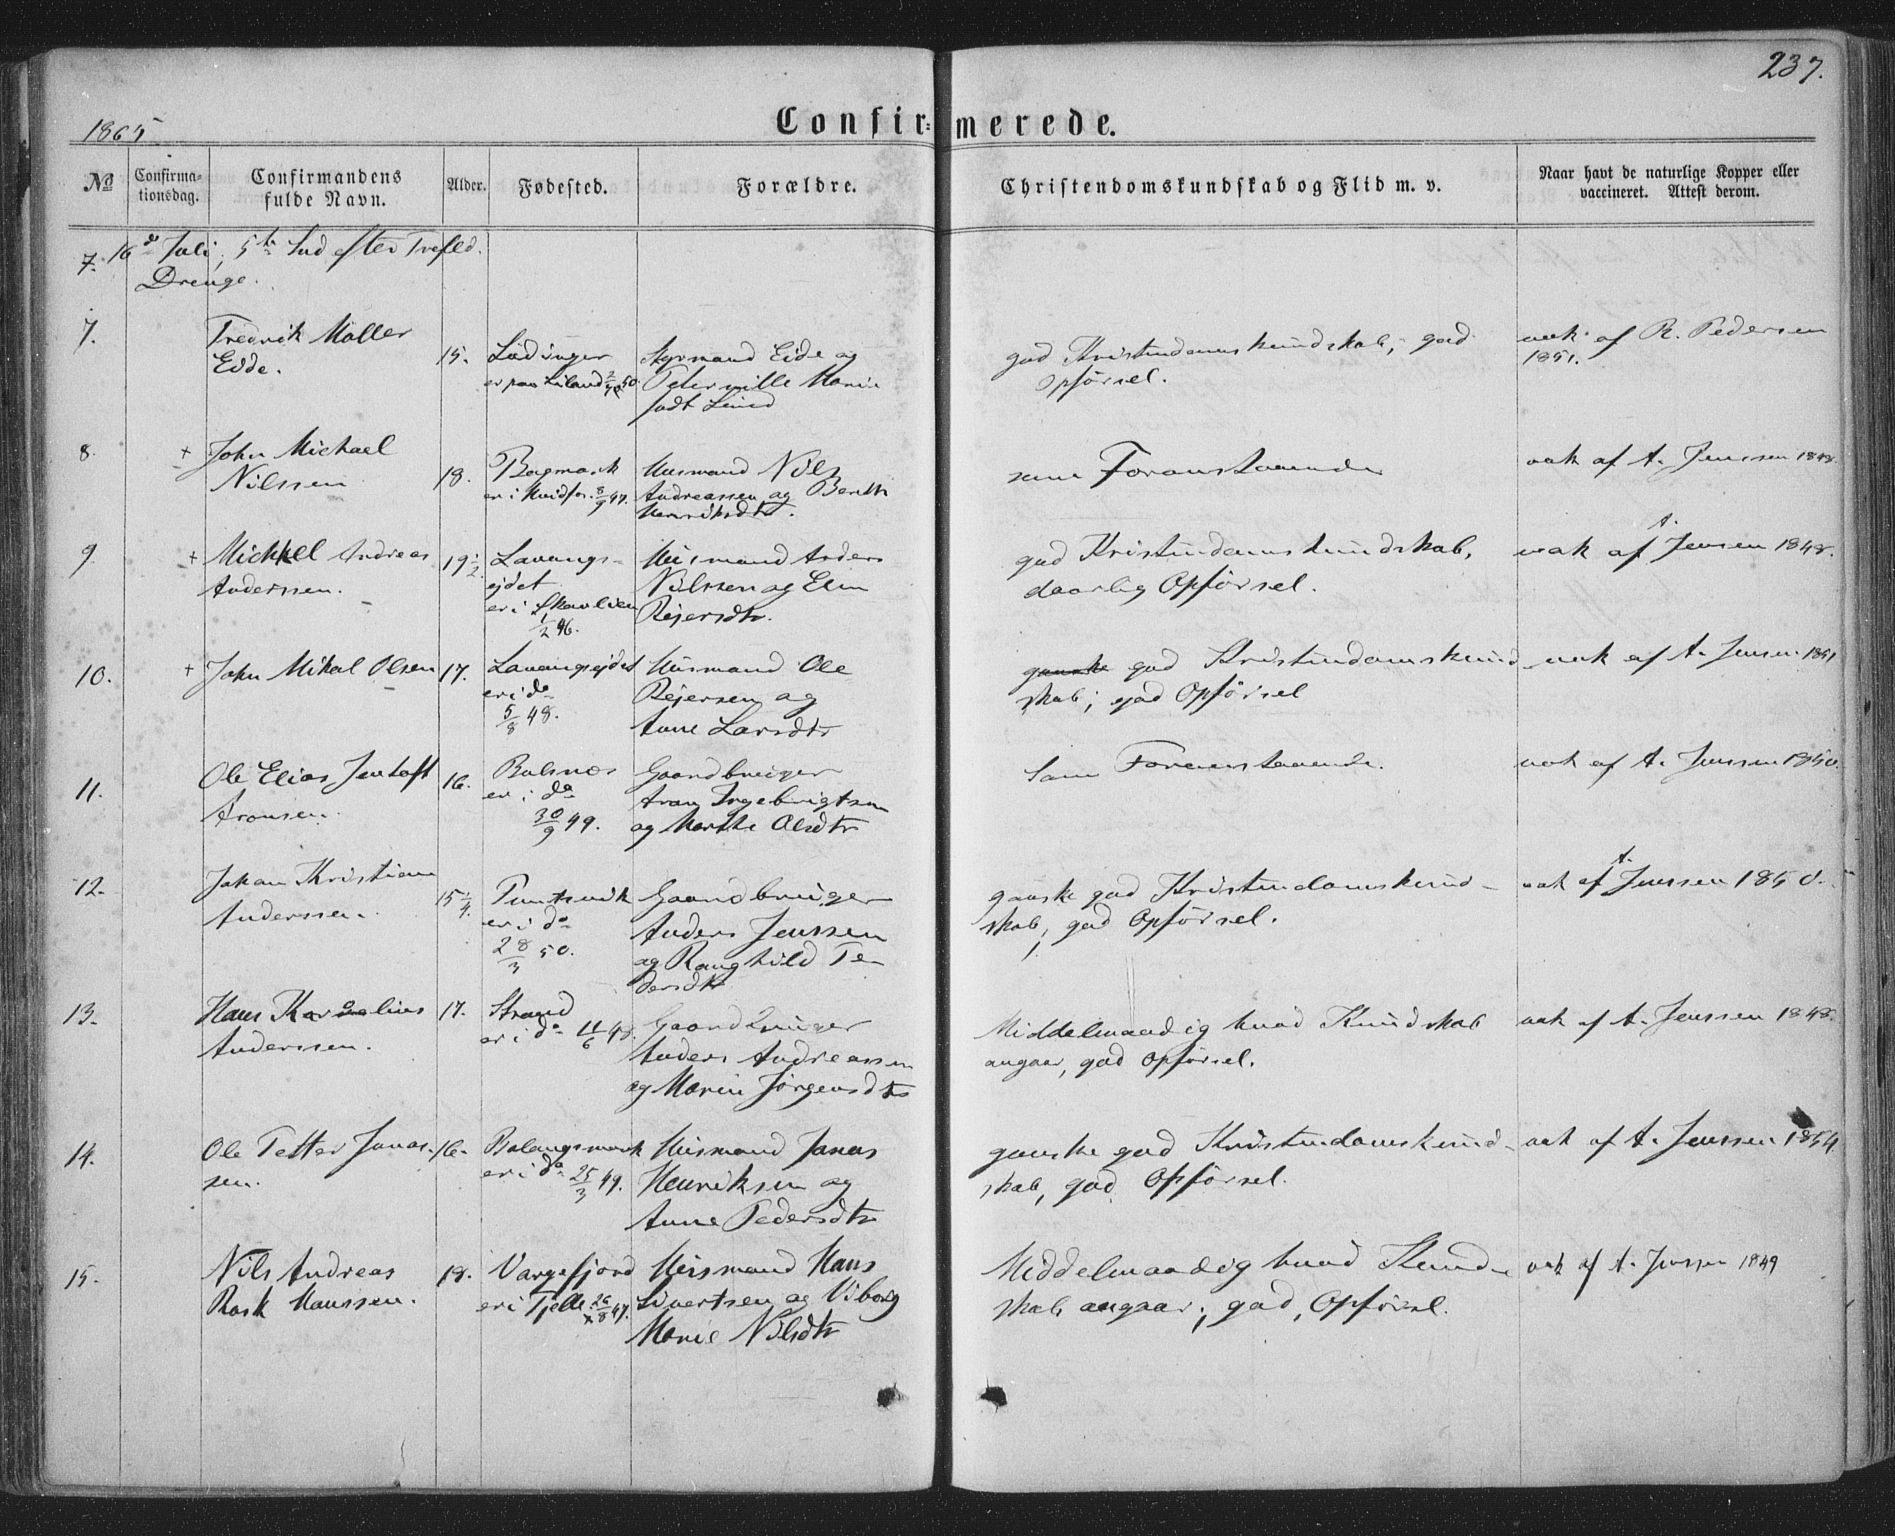 237.
1865
Confirmerede.
№ Confirmationsdag. Confirmandens fulde Navn. Alder. Fødested. Forældre. Christendomskundskab og Flid m. v. Naar havt de naturlige Kopper eller vaccineret. Attest derom.
7. 16d Juli, 5te Snd efter Trefld.
Drenge.
7. Fredrik Møller 15. Lødinger Styrmand Eide og god Kristendomskundskab; god vak. af R. Pedersen
Eide. Petermille Marie Opførsel. 1851.
født Lind
8. + John Michael 18. Bogmark Husmand Nils som Foranstaaende vak af A. Jenssen 1848.
Nilssen er i Kvidfor. 8/9 47. Andreassen og Berith
Henriksdtr.
9. + Mickel Andreas 19 1/2 Lavangs- Husmand Anders god Kristendomskundskab, vak af A. Jensen 1848.
Anderssen. ejdet Nilssen og Elen daarlig Opførsel.
er i Skavlien Rejersdtr.
1/2 46.
10. + John Mikal Olsen 17. Lavangsejdet Husmand Ole ganske god Kristendomskund- vak af A. Jensen 1851
er i do Rejersen og skab; god Opførsel
5/8 48. Anne Larsdtr
11. Ole Elias Jentoft 16. Balsnes Gaardbruger Som Foranstaaende. vak af A. Jenssen 1850.
Aronsen. er i do Aron Ingebrigtsen
30/9 49. og Marthe Olsdtr
12. Johan Kristian 15 1/4. Gaardbruger ganske god Kristendomskund- vak af A. Jenssen 1850.
Anderssen. er i do Anders Jenssen skab, god Opførsel.
28/3 50. og Ranghild Pe
dersdtr
13. Hans Kornelius 17. Strand Gaardbruger Middelmaadig hvad Kundskab vak af A. Jenssen 1848.
Anderssen. er i do 11/6 48. Anders Andreassen angaar, god Opførsel.
og Maren Jørgensdtr
14. Ole Petter Jonas- 16. Balangsmark Husmand Jonas ganske god Kristendomskund- vak af A. Jenssen 1854.
sen. er i do 25/3 49. Henriksen og skab, god Opførsel.
Anne Pedersdtr
15. Nils Andreas 18. Vargefjord Husmand Hans Middelmaadig hvad Kund- vak af A. Jenssen 1849
Rask Hanssen. er i Tjelle 26/8 47. Sivertsen og Viborg skab angaar; god Opførsel.
Marie Nilsdtr